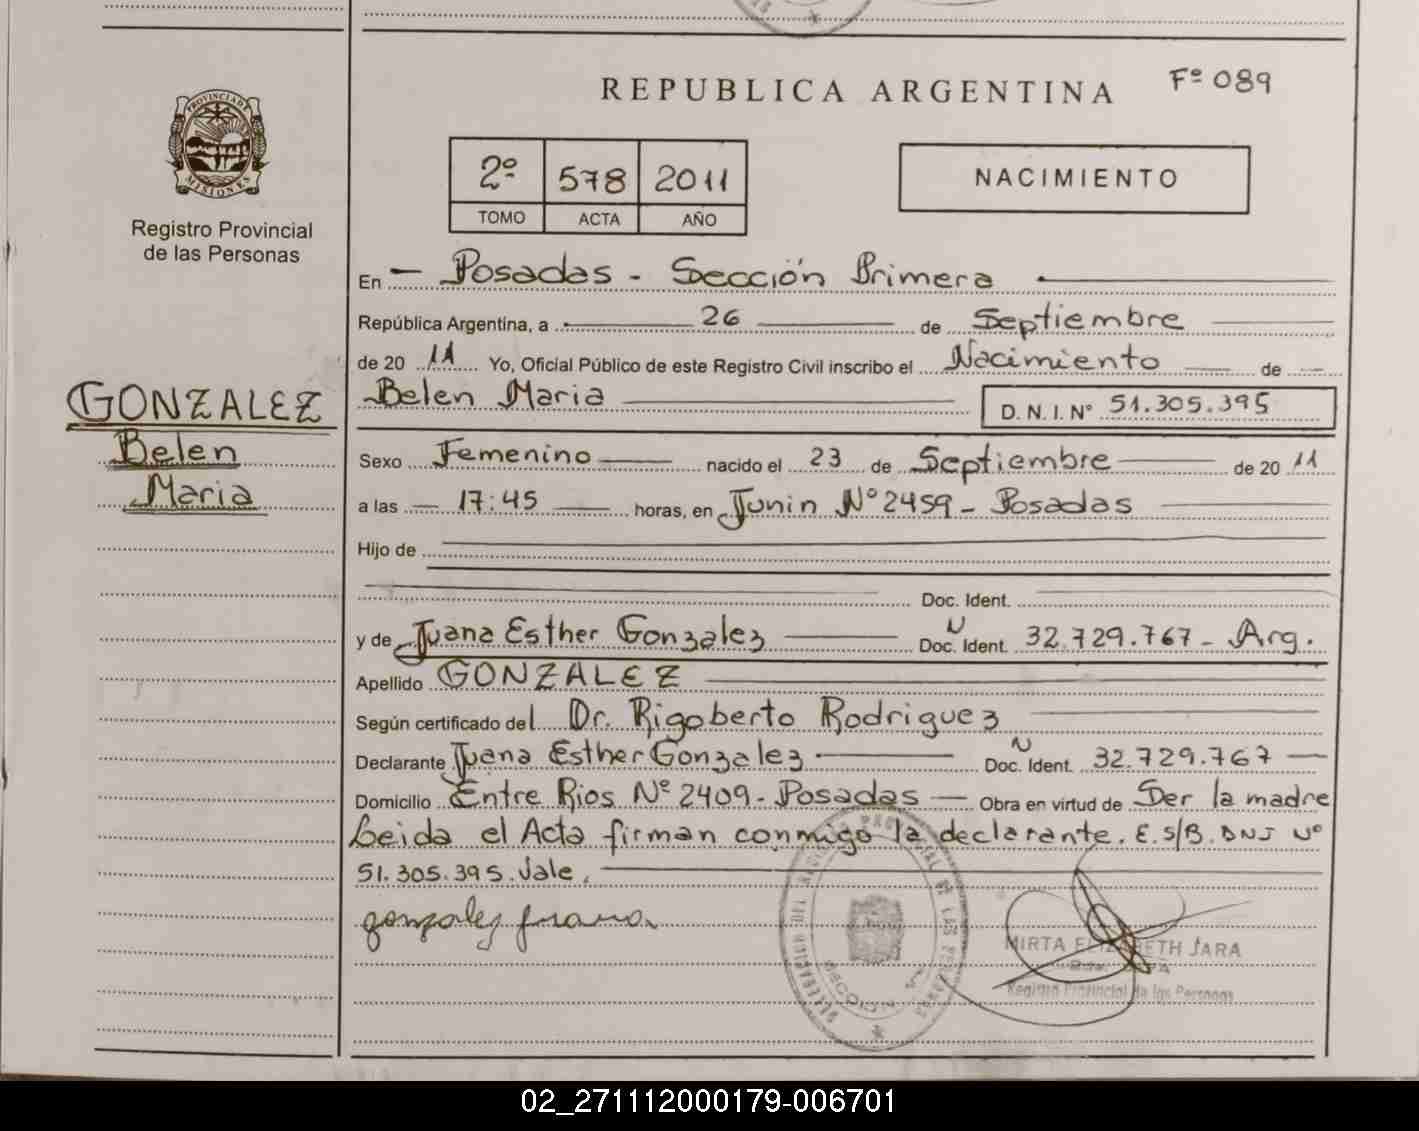 REPUBLICA ARGENTINA
Fº 089
PROVINCIA DE MISIONES
Registro Provincial
de las Personas
2º 578 2011
TOMO ACTA AÑO
NACIMIENTO
En - Posadas - Sección Primera
República Argentina, a 26 de Septiembre
de 20 11 Yo, Oficial Público de este Registro Civil inscribo el Nacimiento de
GONZALEZ
Belen
Maria
Belen Maria D.N.I. N° 51.305.395
Sexo Femenino nacido el 23 de Septiembre de 20 11
a las 17:45 horas, en Junin Nº 2459 - Posadas
Hijo de
Doc. Ident.
y de Juana Esther Gonzalez Doc. Ident. N 32.729.767 - Arg.
Apellido GONZALEZ
Según certificado del Dr. Rigoberto Rodriguez
Declarante Juana Esther Gonzalez Doc. Ident. N 32.729.767
Domicilio Entre Rios Nº 2409 - Posadas Obra en virtud de Ser la madre
Leida el Acta firman conmigo la declarante. E.S/B. DNI Nº
51.305.395. Vale.
gonzalez juana
MIRTA ELIZABETH JARA
Registro Provincial de las Personas
02_271112000179-006701